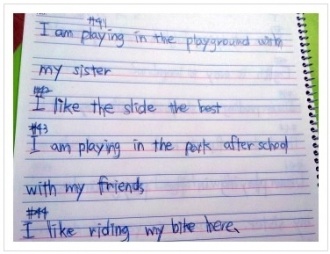 #41
I am playing in the playground with
my sister
#42
I like the slide the best
#43
I am playing in the park after school
with my friends
#44
I like riding my bike here.